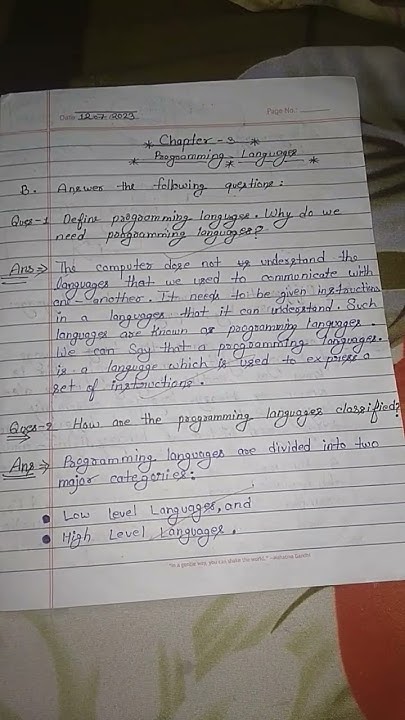 Date 12.07.2023 Page No.:
* Chapter - 3 *
* Programming Languages *
B. Answer the following questions:
Ques-1 Define programming language. Why do we
need programming languages?
Ans⇒ The computer dose not understand the
languages that we used to communicate with
one another. It needs to be given instructions
in a languages that it can understand. Such
languages are known as programming languages.
We can Say that a programming languages.
is a language which is used to express a
set of instructions.
Ques-2 How are the programming languages classified?
Ans⇒ Programming languages are divided into two
major categories:
• Low level Languages, and
• High Level Languages.
"In a gentle way, you can shake the world." —Mahatma Gandhi